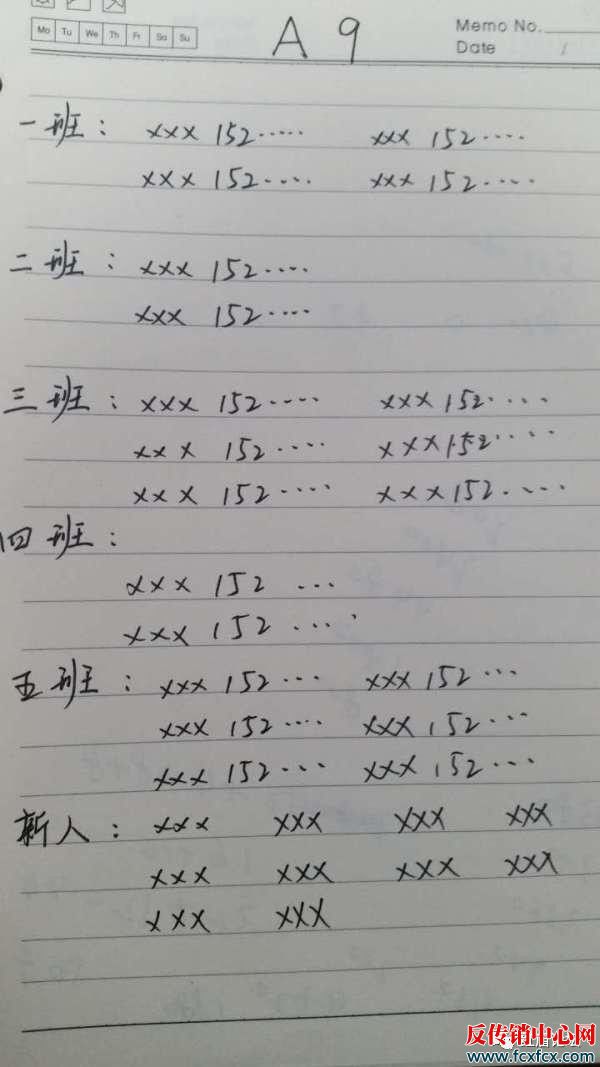 Mo Tu We Th Fr Sa Su
A 9
Memo No.
Date
一班: xxx 152..... xxx 152....
xxx 152..... xxx 152....
二班: xxx 152....
xxx 152....
三班: xxx 152.... xxx 152....
xxx 152.... xxx 152....
xxx 152.... xxx 152.....
四班:
xxx 152 ...
xxx 152 ....
五班: xxx 152... xxx 152...
xxx 152.... xxx 152...
xxx 152... xxx 152...
新人: xxx xxx xxx xxx
xxx xxx xxx xxx
xxx xxx
反传销中心网
www.fcxfcx.com